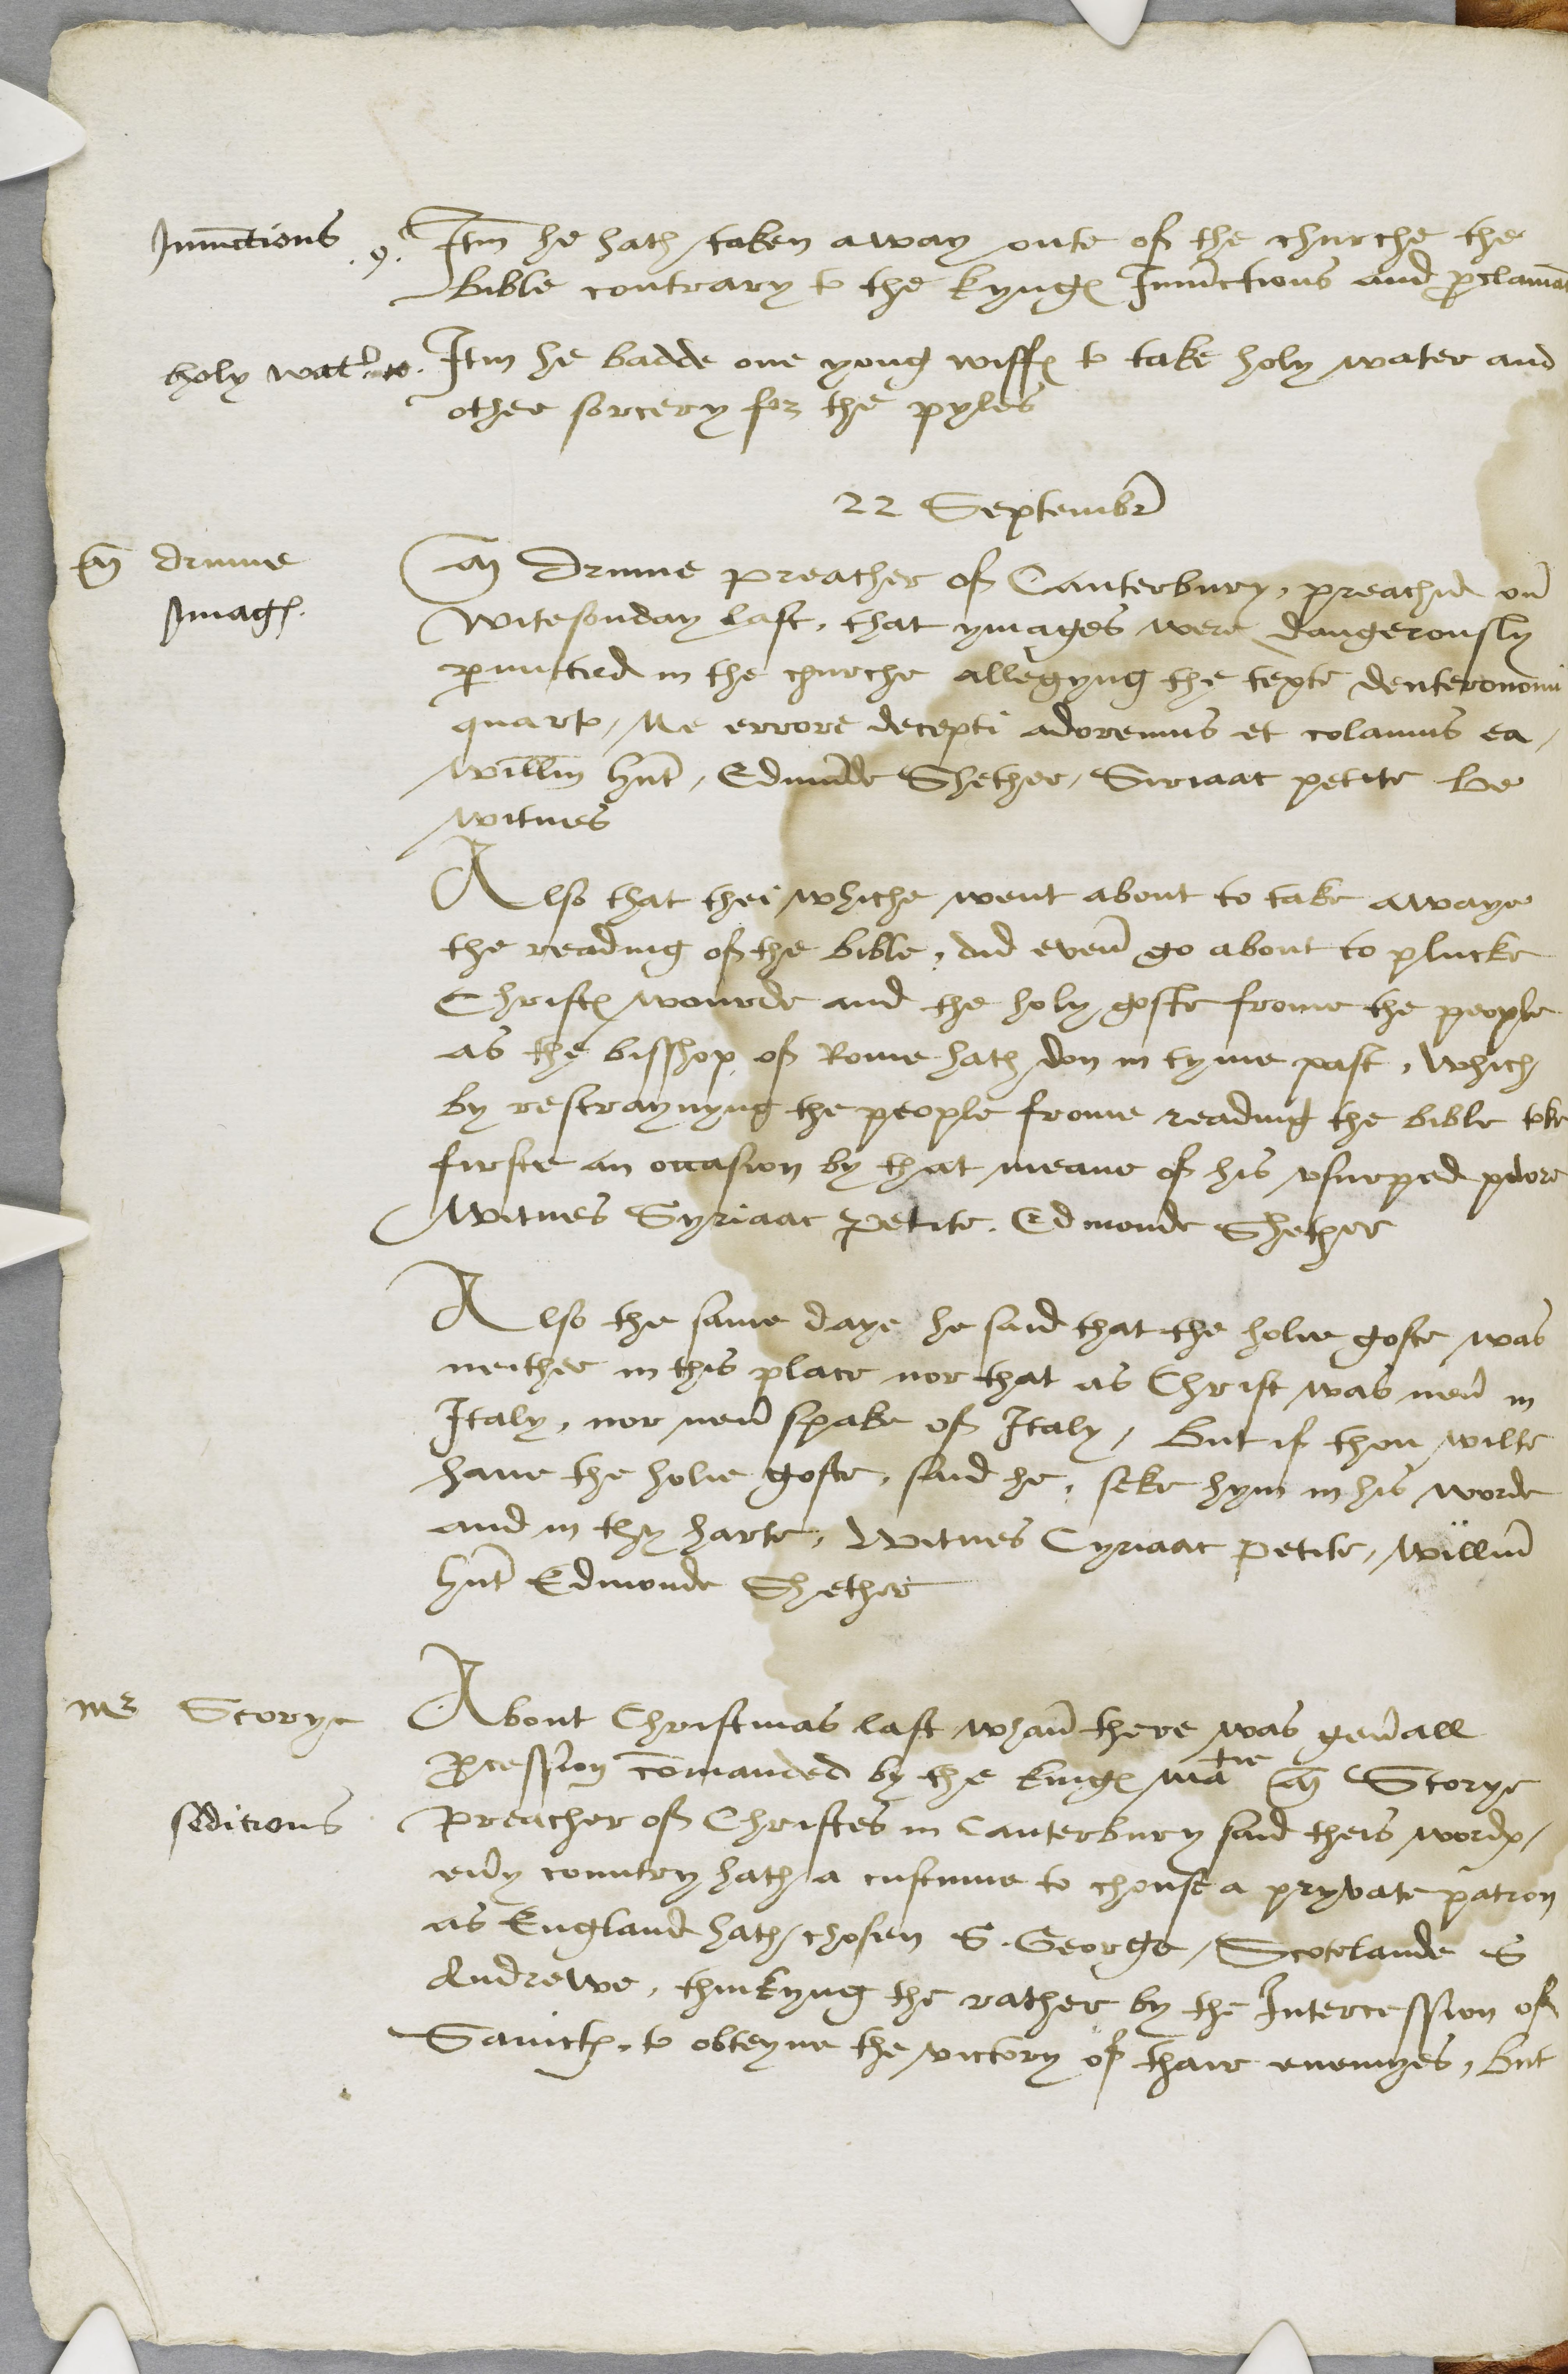 Iniunctions .9. Itm he hath taken away oute of the churche the
Bible contrary to the kynges Iniunctions and proclamat
holy wat' .10. Itm he badde one yong wiffes to take holy water and
other sorcery for the pyles
22 Septembr
Mr Drume
Images.
Mr Drume preacher of Canterbury, preachid on
Witesonday last, that ymages were dangerously
permitted in the churche allegyng the texte deuteronomi
quarto, Ne errore decepti adoremus et colamus ea,
Willm hunt, Edmunde Shether, Siriaac petite be
witnes
Also that thei whiche went about to take awaye
the reading of the bible, did even go about to plucke
Christes wourde and the holy goste frome the people
as the bisshop of Rome hath don in tyme past, which
by restraynyng the people frome reading the bible toke
firste an occasion by that meane of his vsurped powre
Witnes Syriaac Petite, Edmonde Shether
Also the same daye he said that the holie goste was
neither in this place nor that as Christ was neu' in
Italy, nor neu' spake of Italy, But if thou wilte
haue the holie goste, said he, seke hym in his worde
and in thy harte, Witnes Cyriaac Petite, Willm
hunt Edmonde Shether
Mr Scorye
About Christmas last whan there was gen'all
procession comanded by the kinges matie Mr Scorye
seditious
preacher of Christes in Canterbury said theis wordes,
eu'y country hath a custume to chouse a pryvate patron
as England hath chosen S. George, Scotelande S
Andrewe, thinkyng the rather by the Intercession of
Sainctes, to obteyne the victory of thair enemyes, But